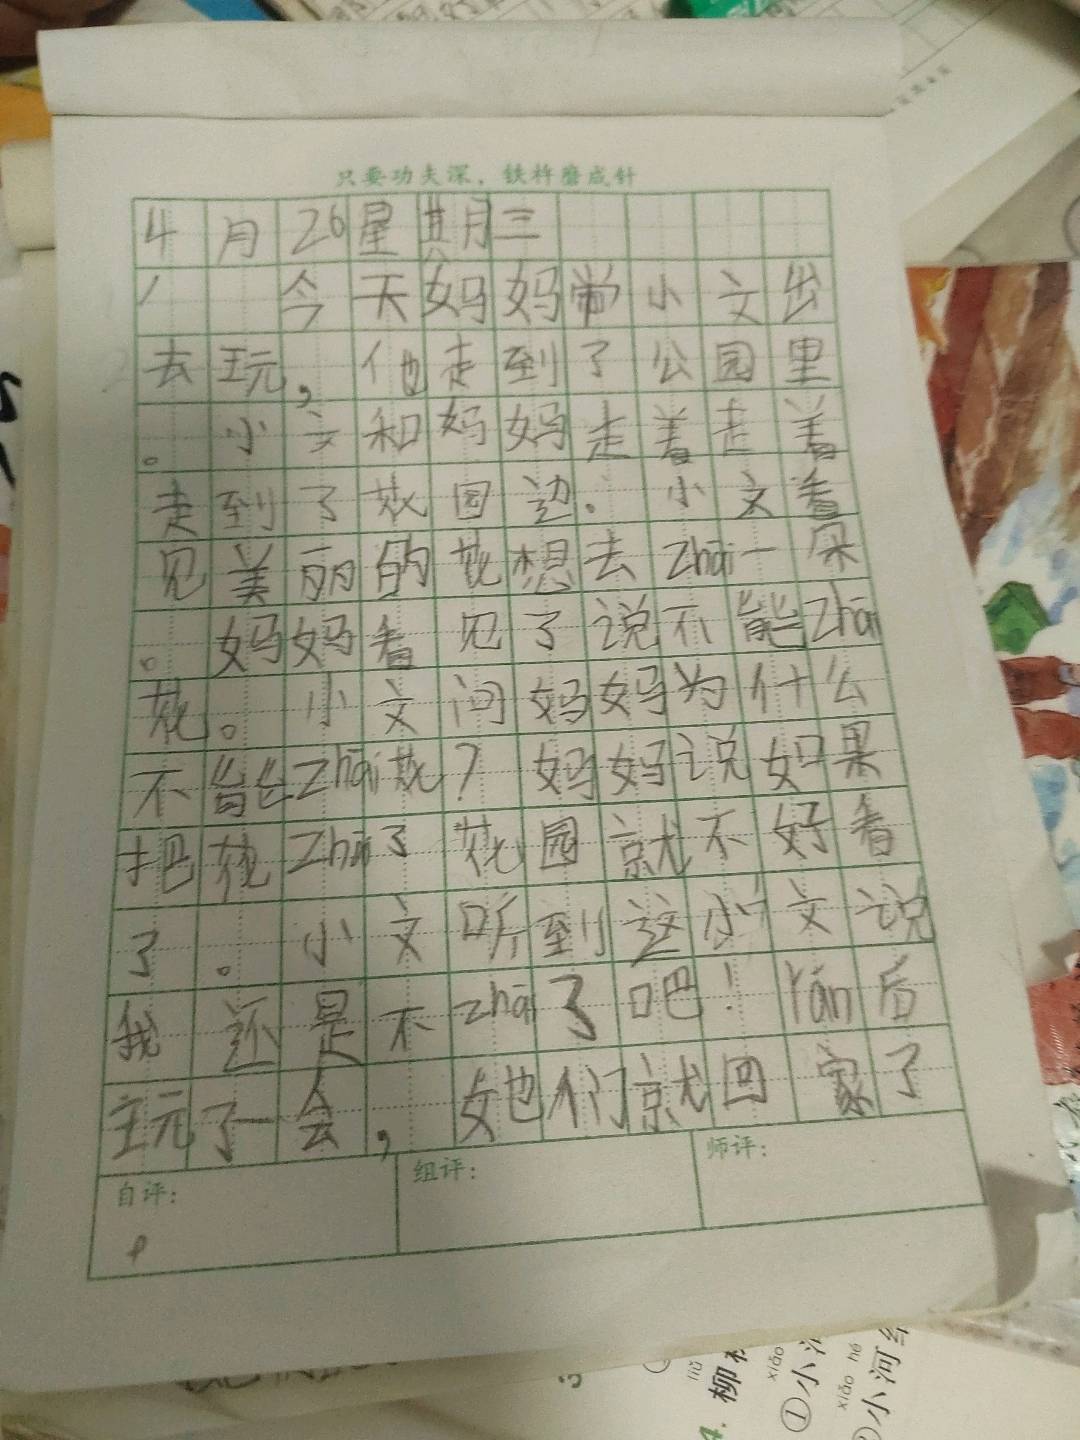 只要功夫深，铁杵磨成针
4月26星期三
今天妈妈带小文出
去玩，他走到了公园里
。小文和妈妈走着走着
走到了花园边．小文看
见美丽的花想去zhāi一朵
。妈妈看见了说不能zhāi
花。小文问妈妈为什么
不能zhāi花？妈妈说如果
把花zhāi了花园就不好看
了。小文听到这小文说
我还是不zhāi了吧！rán后
玩了一会，她们就回家了
自评：
组评：
师评：
4.
柳
liǔ
①小河
xiǎo
②小河
xiǎo hé